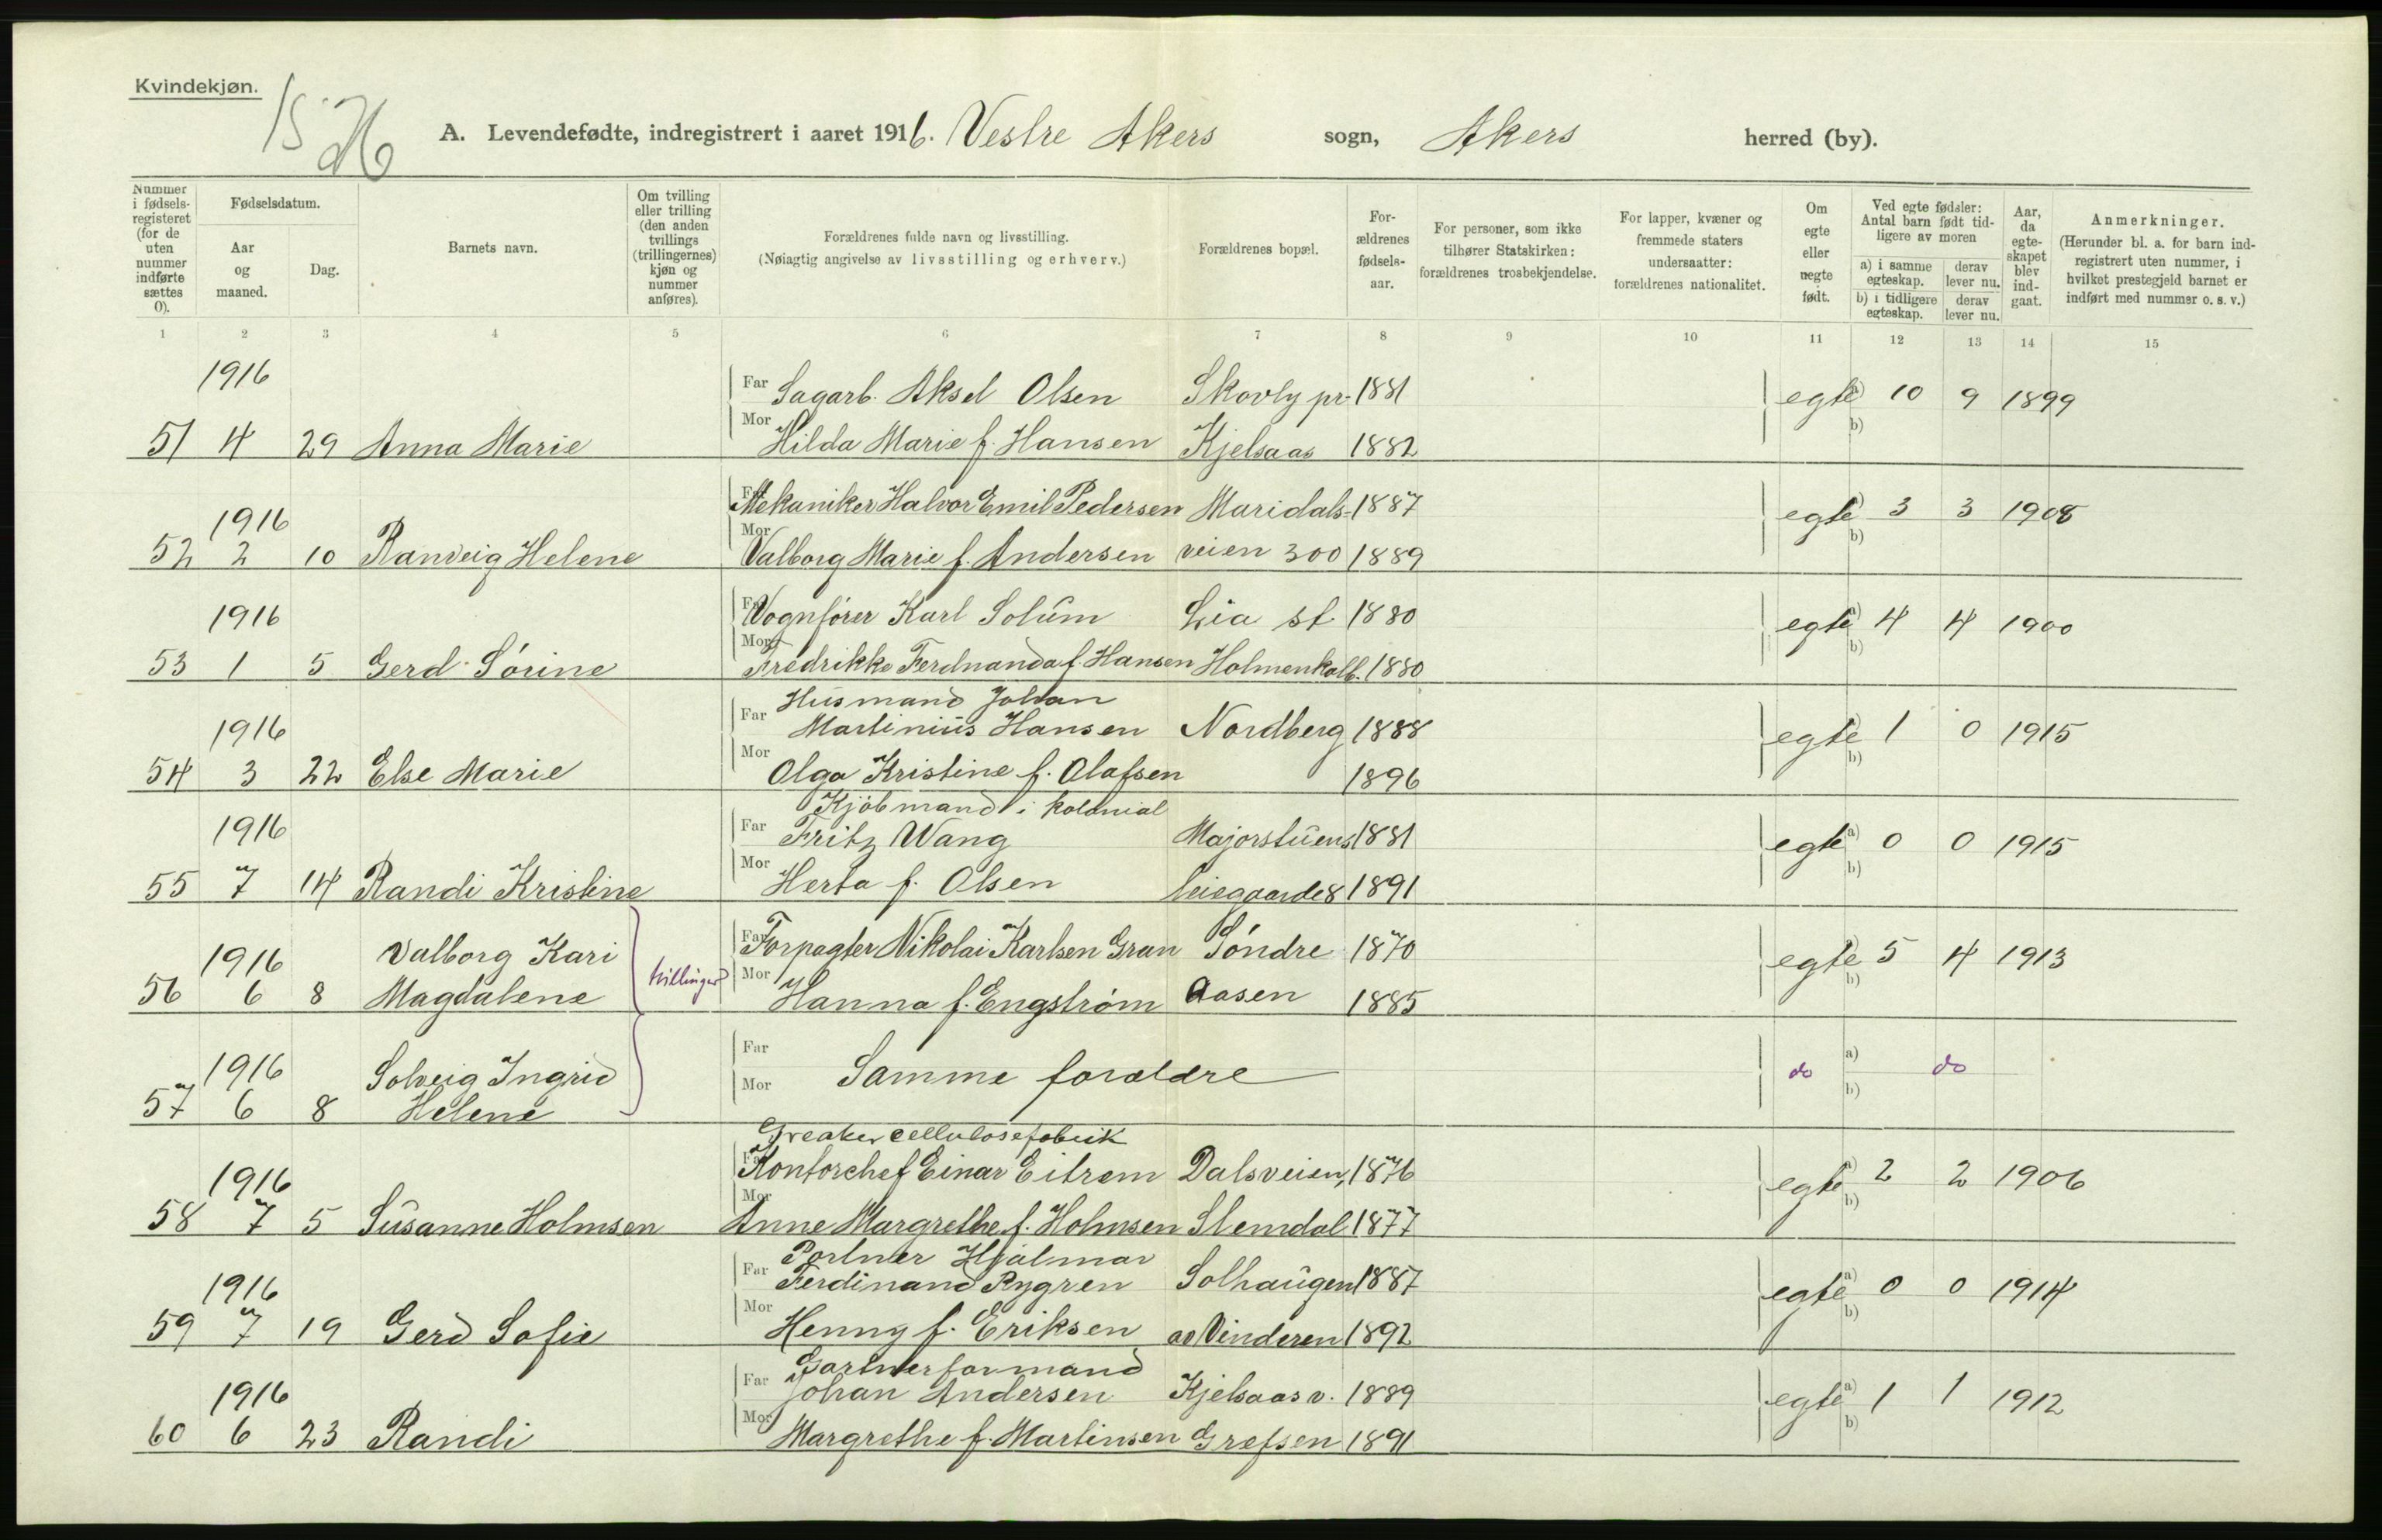 Kvindekjøn.
15
A. Levendefødte, indregistrert i aaret 1916. Vestre Akers sogn, Akers herred (by).
Nummer i fødsels-registeret (for de uten nummer indførte sættes 0).
Fødselsdatum.
Aar og maaned.
Dag.
Barnets navn.
Om tvilling eller trilling (den anden tvillings (trillingernes) kjøn og nummer anføres).
Forældrenes fulde navn og livsstilling.
(Nøiagtig angivelse av livsstilling og erhverv.)
Forældrenes bopæl.
For-ældrenes fødsels-aar.
For personer, som ikke tilhører Statskirken: forældrenes trosbekjendelse.
For lapper, kvæner og fremmede staters undersaatter: forældrenes nationalitet.
Om egte eller uegte født.
Ved egte fødsler: Antal barn født tid-ligere av moren
a) i samme egteskap. derav lever nu.
b) i tidligere egteskap. derav lever nu.
Aar, da egte-skapet blev ind-gaat.
Anmerkninger.
(Herunder bl. a. for barn ind-registrert uten nummer, i hvilket prestegjeld barnet er indført med nummer o. s. v.)
1 2 3 4 5 6 7 8 9 10 11 12 13 14 15
1916 Far Sagarb. Aksel Olsen Skovly pr. 1881 egte a) 10 9 1899
51 4 29 Anna Marie Mor Hilda Marie f. Hansen Kjelsaas 1882 b)
1916 Far Mekaniker Halvor Emil Pedersen Maridals- 1887 egte a) 3 3 1908
52 2 10 Ranveig Helene Mor Valborg Marie f. Andersen veien 300 1889 b)
1916 Far Vognfører Karl Solum Lia st 1880 egte a) 4 4 1900
53 1 5 Gerd Sörine Mor Fredrikke Ferdnanda f. Hansen Holmenkolb. 1880 b)
Husmand Johan
1916 Far Martinius Hansen Nordberg 1888 egte a) 1 0 1915
54 3 22 Else Marie Mor Olga Kristine f. Olafsen 1896 b)
Kjöbmand i kolonial
1916 Far Fritz Wang Majorstuens 1881 egte a) 0 0 1915
55 7 14 Randi Kristine Mor Herta f. Olsen leiegaarde 8 1891 b)
1916 Valborg Kari Far Forpagter Nikolai Karlsen Gran Söndre 1870 egte a) 5 4 1913
56 6 8 Magdalene tvillinger Mor Hanna f. Engström Aasen 1885 b)
1916 Solveig Ingrid Far Samme forældre do a) do
57 6 8 Helene Mor b)
Greaker cellulosefabrik
1916 Far Kontorchef Einar Eitrem Dalsveien, 1876 egte a) 2 2 1906
58 7 5 Susanne Holmsen Mor Anne Margrethe f. Holmsen Slemdal 1877 b)
Portner Hjalmar
1916 Far Ferdinand Rygren Solhaugen 1887 egte a) 0 0 1914
59 7 19 Gerd Sofie Mor Henny f. Eriksen av Vinderen 1892 b)
Gartnerformand
1916 Far Johan Andersen Kjelsaas v. 1889 egte a) 1 1 1912
60 6 23 Randi Mor Margrethe f. Martinsen Grefsen 1891 b)